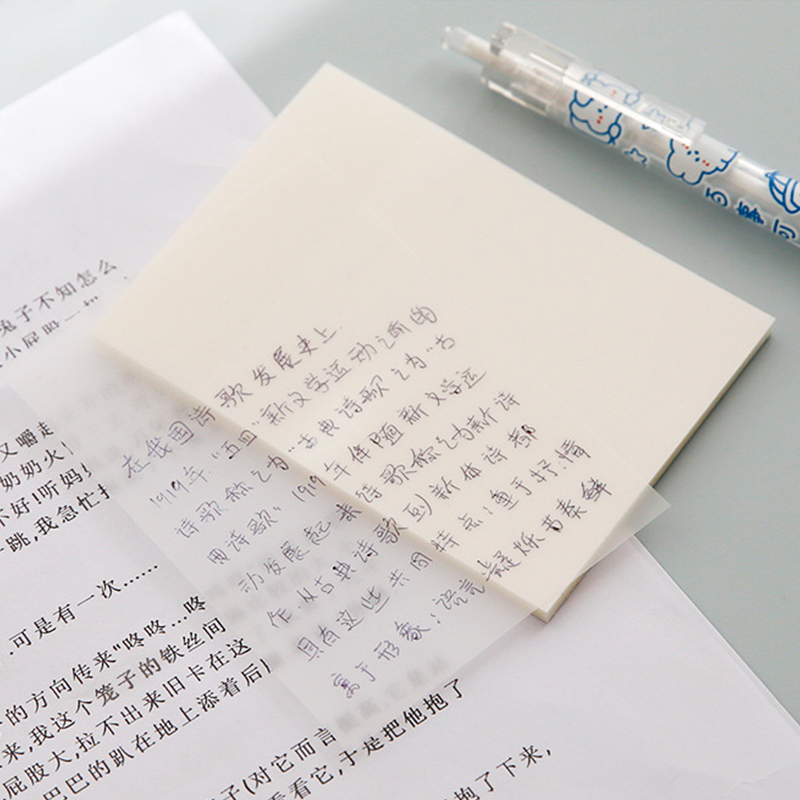 兔子不知怎么
又嚼走
奶奶火
不好!听妈
一跳,我急忙
.可是有一次……
的方向传来"咚咚…咚
来,我这个笼子的铁丝间
屁股大,拉不出来旧卡在这
巴巴的趴在地上添着后
子(对它而言
看它,于是把他抱了
抱了下来,
在我国诗歌发展史上.
1919年"五四"新文学运动之前的
诗歌称之为"古典诗歌之为"古
用诗歌".1919年伴随新文学运
动发展起来诗歌称之为新诗
作.从古典诗歌到新体诗都
具有这些共同特点:重于抒情
寓于形象;语言凝炼节奏鲜
百事可